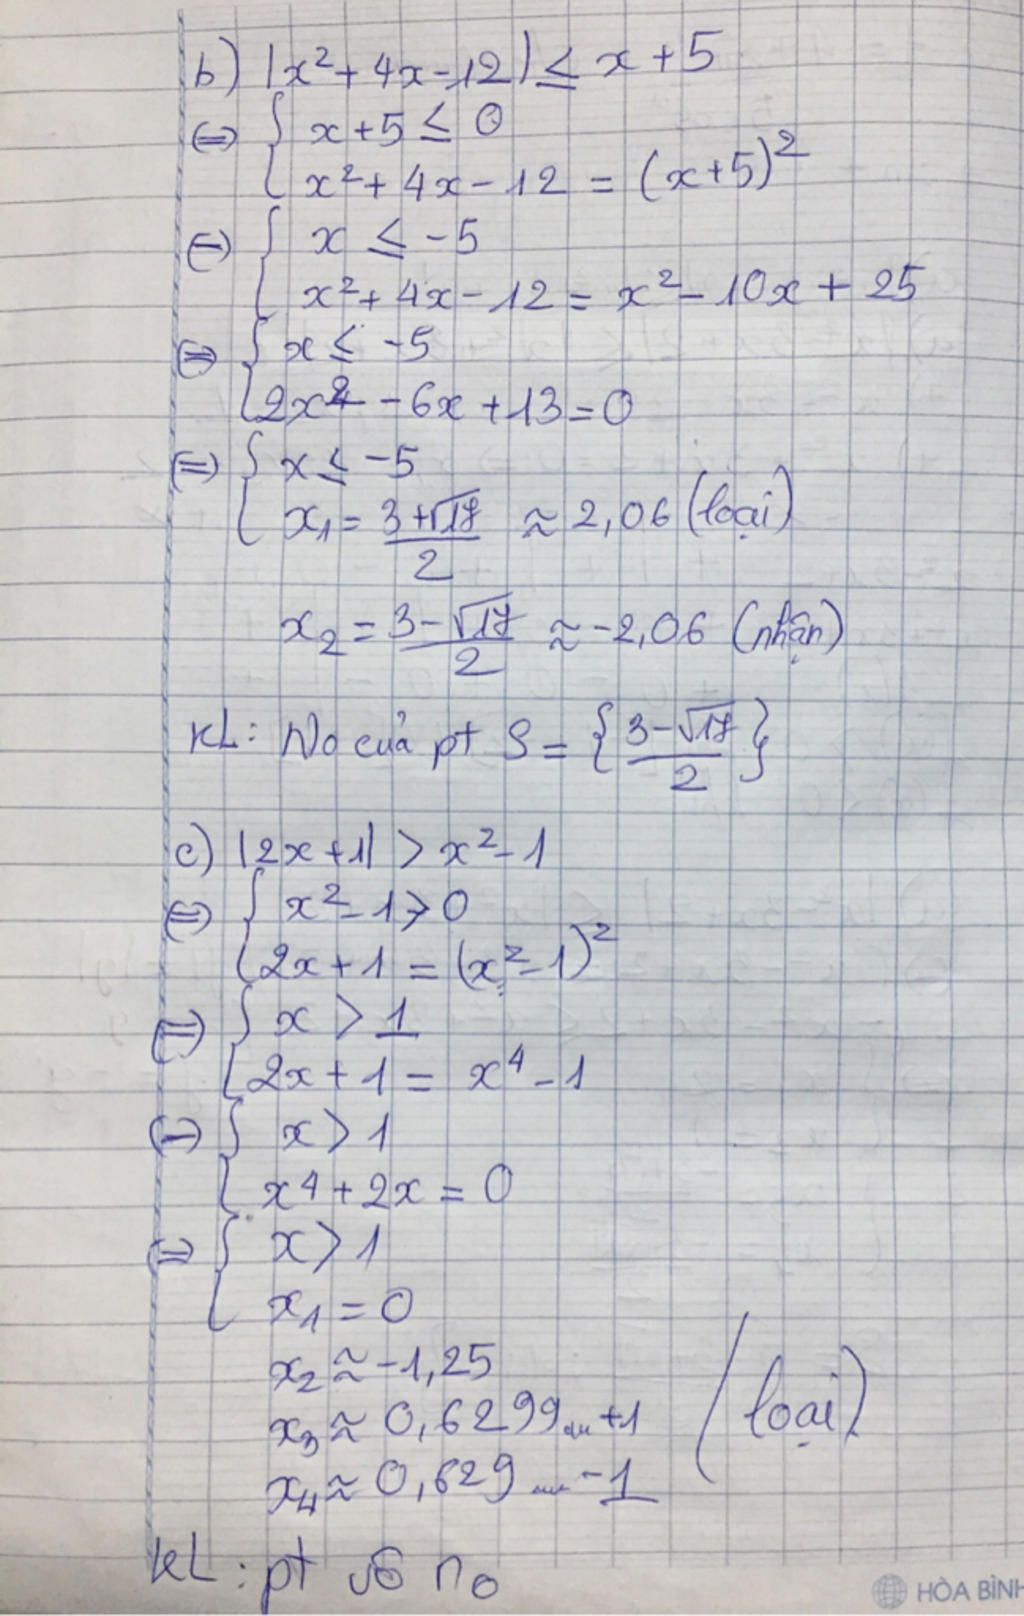 b) |x² + 4x - 12| ≤ x + 5
⇔ { x + 5 ≤ 0
x² + 4x - 12 = (x + 5)²
⇔ { x ≤ -5
x² + 4x - 12 = x² - 10x + 25
⇔ { x ≤ -5
2x² - 6x + 13 = 0
⇔ { x ≤ -5
x₁ = (3 + √17)/2 ≈ 2,06 (loại)
x₂ = (3 - √17)/2 ≈ -2,06 (nhận)
KL: No của pt S = {(3 - √17)/2}
c) |2x + 1| > x² - 1
⇔ { x² - 1 > 0
2x + 1 = (x² - 1)²
⇔ { x > 1
2x + 1 = x⁴ - 1
⇔ { x > 1
x⁴ + 2x = 0
⇔ { x > 1
x₁ = 0
x₂ ≈ -1,25
x₃ ≈ 0,6299... + 1
x₄ ≈ 0,629... - 1
(loại)
KL: pt vô no
HÒA BÌNH